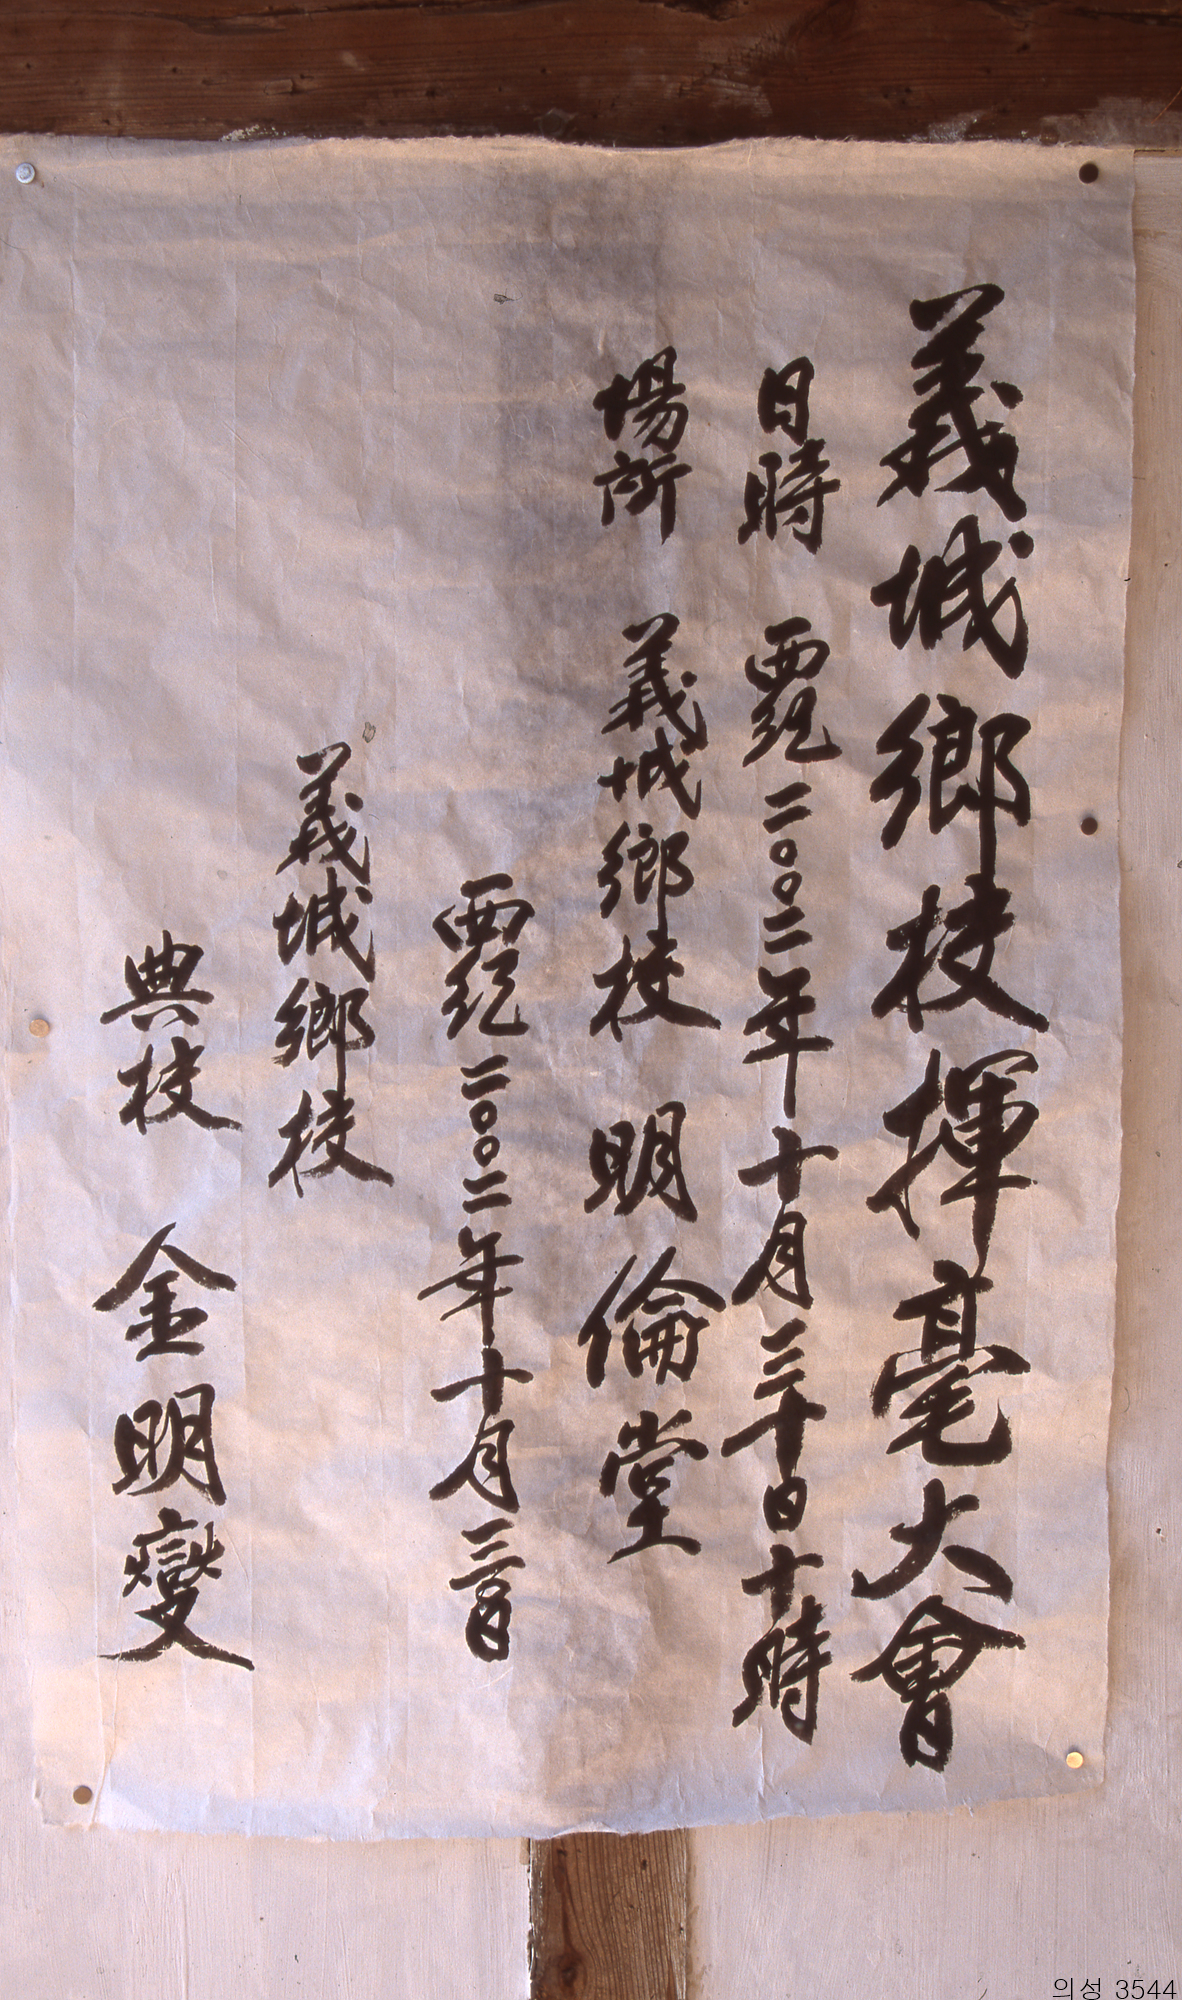 義城鄕校揮毫大會
日時 西紀二○○二年十月三十日十時
場所 義城鄕校 明倫堂
西紀二○○二年十月三日
義城鄕校
典校 金明燮
의성 3544